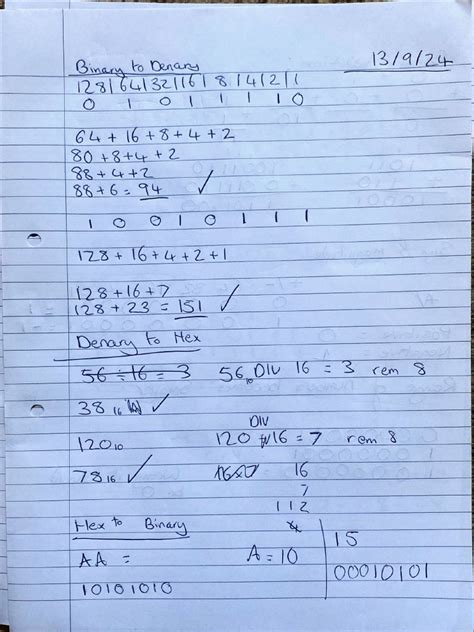 13/9/24
Binary to Denary
128|64|32|16|8|4|2|1
0 1 0 1 1 1 1 0
64 + 16 + 8 + 4 + 2
80 + 8 + 4 + 2
88 + 4 + 2
88 + 6 = 94 ✓
1 0 0 1 0 1 1 1
128 + 16 + 4 + 2 + 1
128 + 16 + 7
128 + 23 = 151 ✓
Denary to Hex
56 ÷ 16 = 3 56₁₀ DIV 16 = 3 rem 8
38₁₆ ✓
DIV
120₁₀ 120 16 = 7 rem 8
78₁₆ ✓ 16
7
112
Hex to Binary
AA = A = 10 15
10101010 00010101